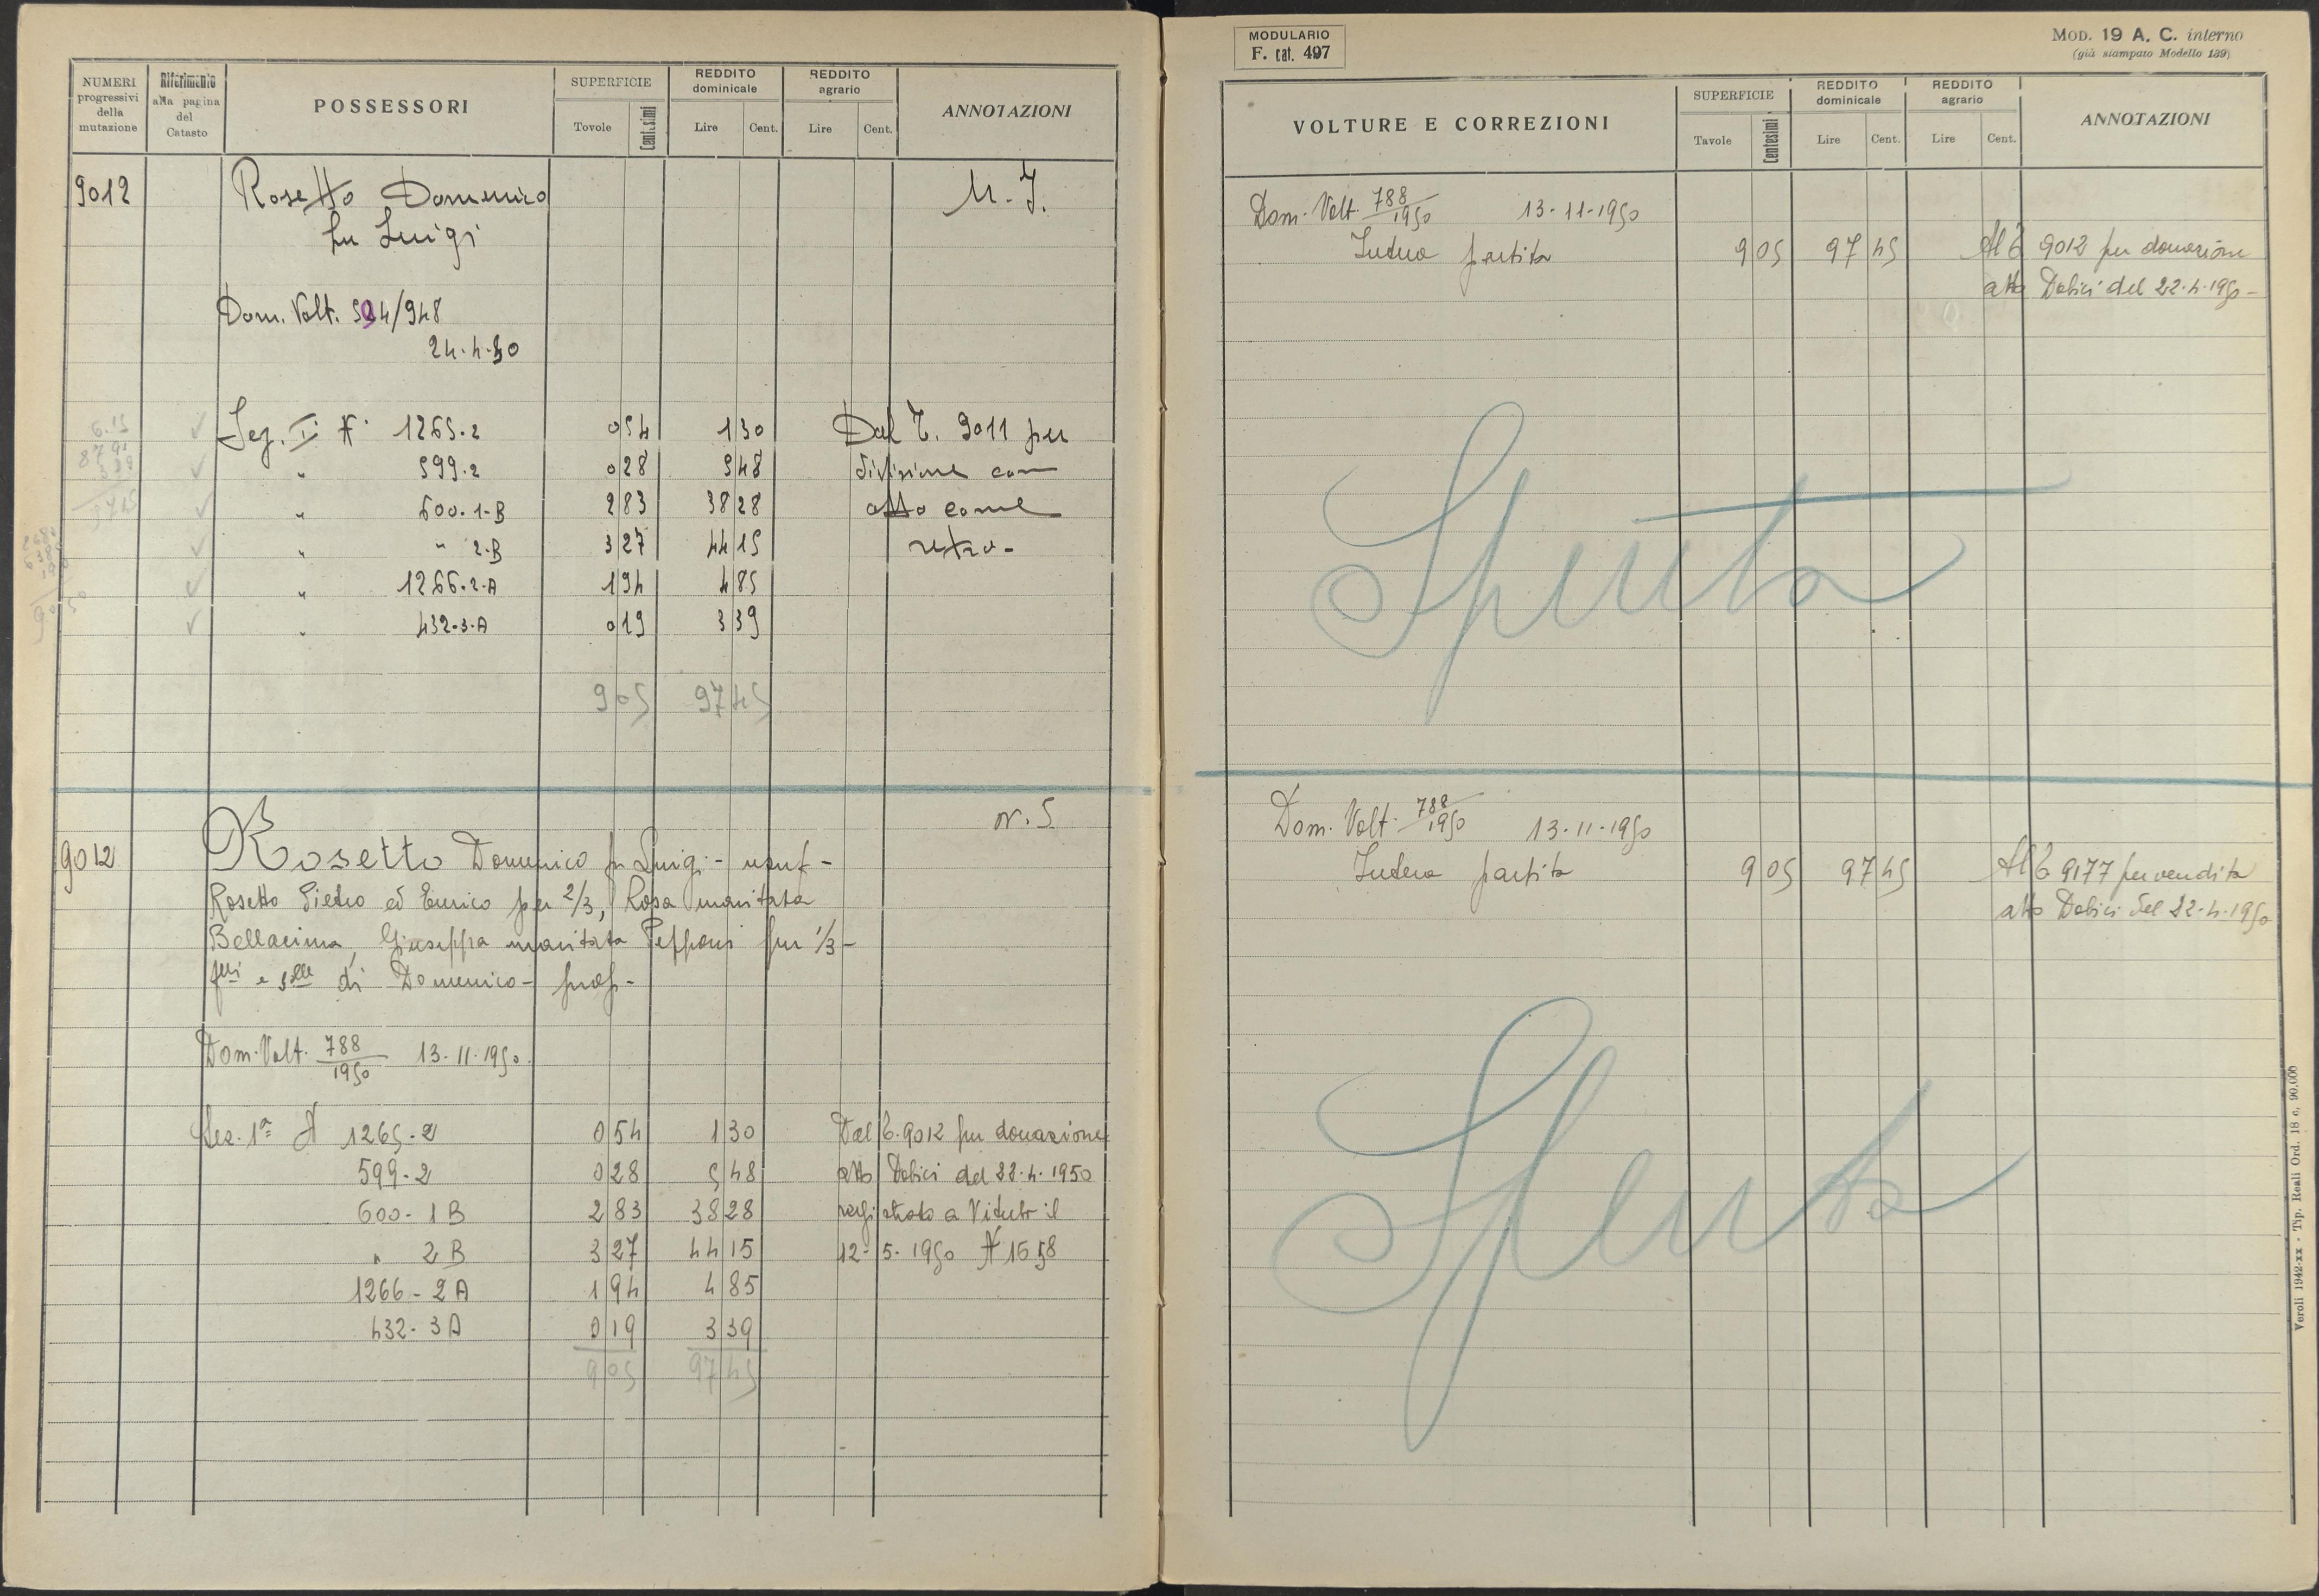 NUMERI progressivi della mutazione
Riferimento alla pagina del Catasto
POSSESSORI
SUPERFICIE
Tovole Centesimi
REDDITO dominicale
Lire Cent.
REDDITO agrario
Lire Cent.
ANNOTAZIONI
9012 Rosetto Domenico
fu Luigi
Dom. Volt. 524/948
24.4.50
Sez. I N. 1265.2 0 54 1 30 Dal T. 9011 per
" 599.2 0 28 5 48 divisione con
" 600.1-B 2 83 38 28 atto come
" " 2-B 3 27 44 15 retro-
" 1266.2-A 1 94 4 85
" 432-3-A 0 19 3 39
9 05 97 45
9012 Rosetto Domenico fu Luigi - usuf - N. 5
Rosetto Pietro ed Enrico per 2/3, Rosa maritata
Bellacima, Giuseppa maritata Pepponi per 1/3 -
di Domenico - prop -
Dom. Volt. 788/1950 13.11.1950.
Sez. 1ª N 1265-2 0 54 1 30 Dal T. 9012 per donazione
599-2 0 28 5 48 atto Dobici del 22.4.1950
600-1B 2 83 38 28 registrato a Viterbo il
" 2B 3 27 44 15 12-5-1950 N 1658
1266-2A 1 94 4 85
432-3A 0 19 3 39
9 05 97 45
MODULARIO
F. cat. 497
MOD. 19 A. C. interno
(già stampato Modello 139)
VOLTURE E CORREZIONI
SUPERFICIE
Tavole Centesimi
REDDITO dominicale
Lire Cent.
REDDITO agrario
Lire Cent.
ANNOTAZIONI
Dom. Volt. 788/1950 13-11-1950
Intera partita 9 05 97 45 Al T 9012 per donazione
atto Dobici del 22.4.1950 -
Spenta
Dom. Volt. 788/1950 13.11.1950
Intera partita 9 05 97 45 Al T 9177 per vendita
atto Dobici del 22-4-1950
Spenta
Veroli 1942-xx - Tip. Reali Ord. 18 c. 90.000